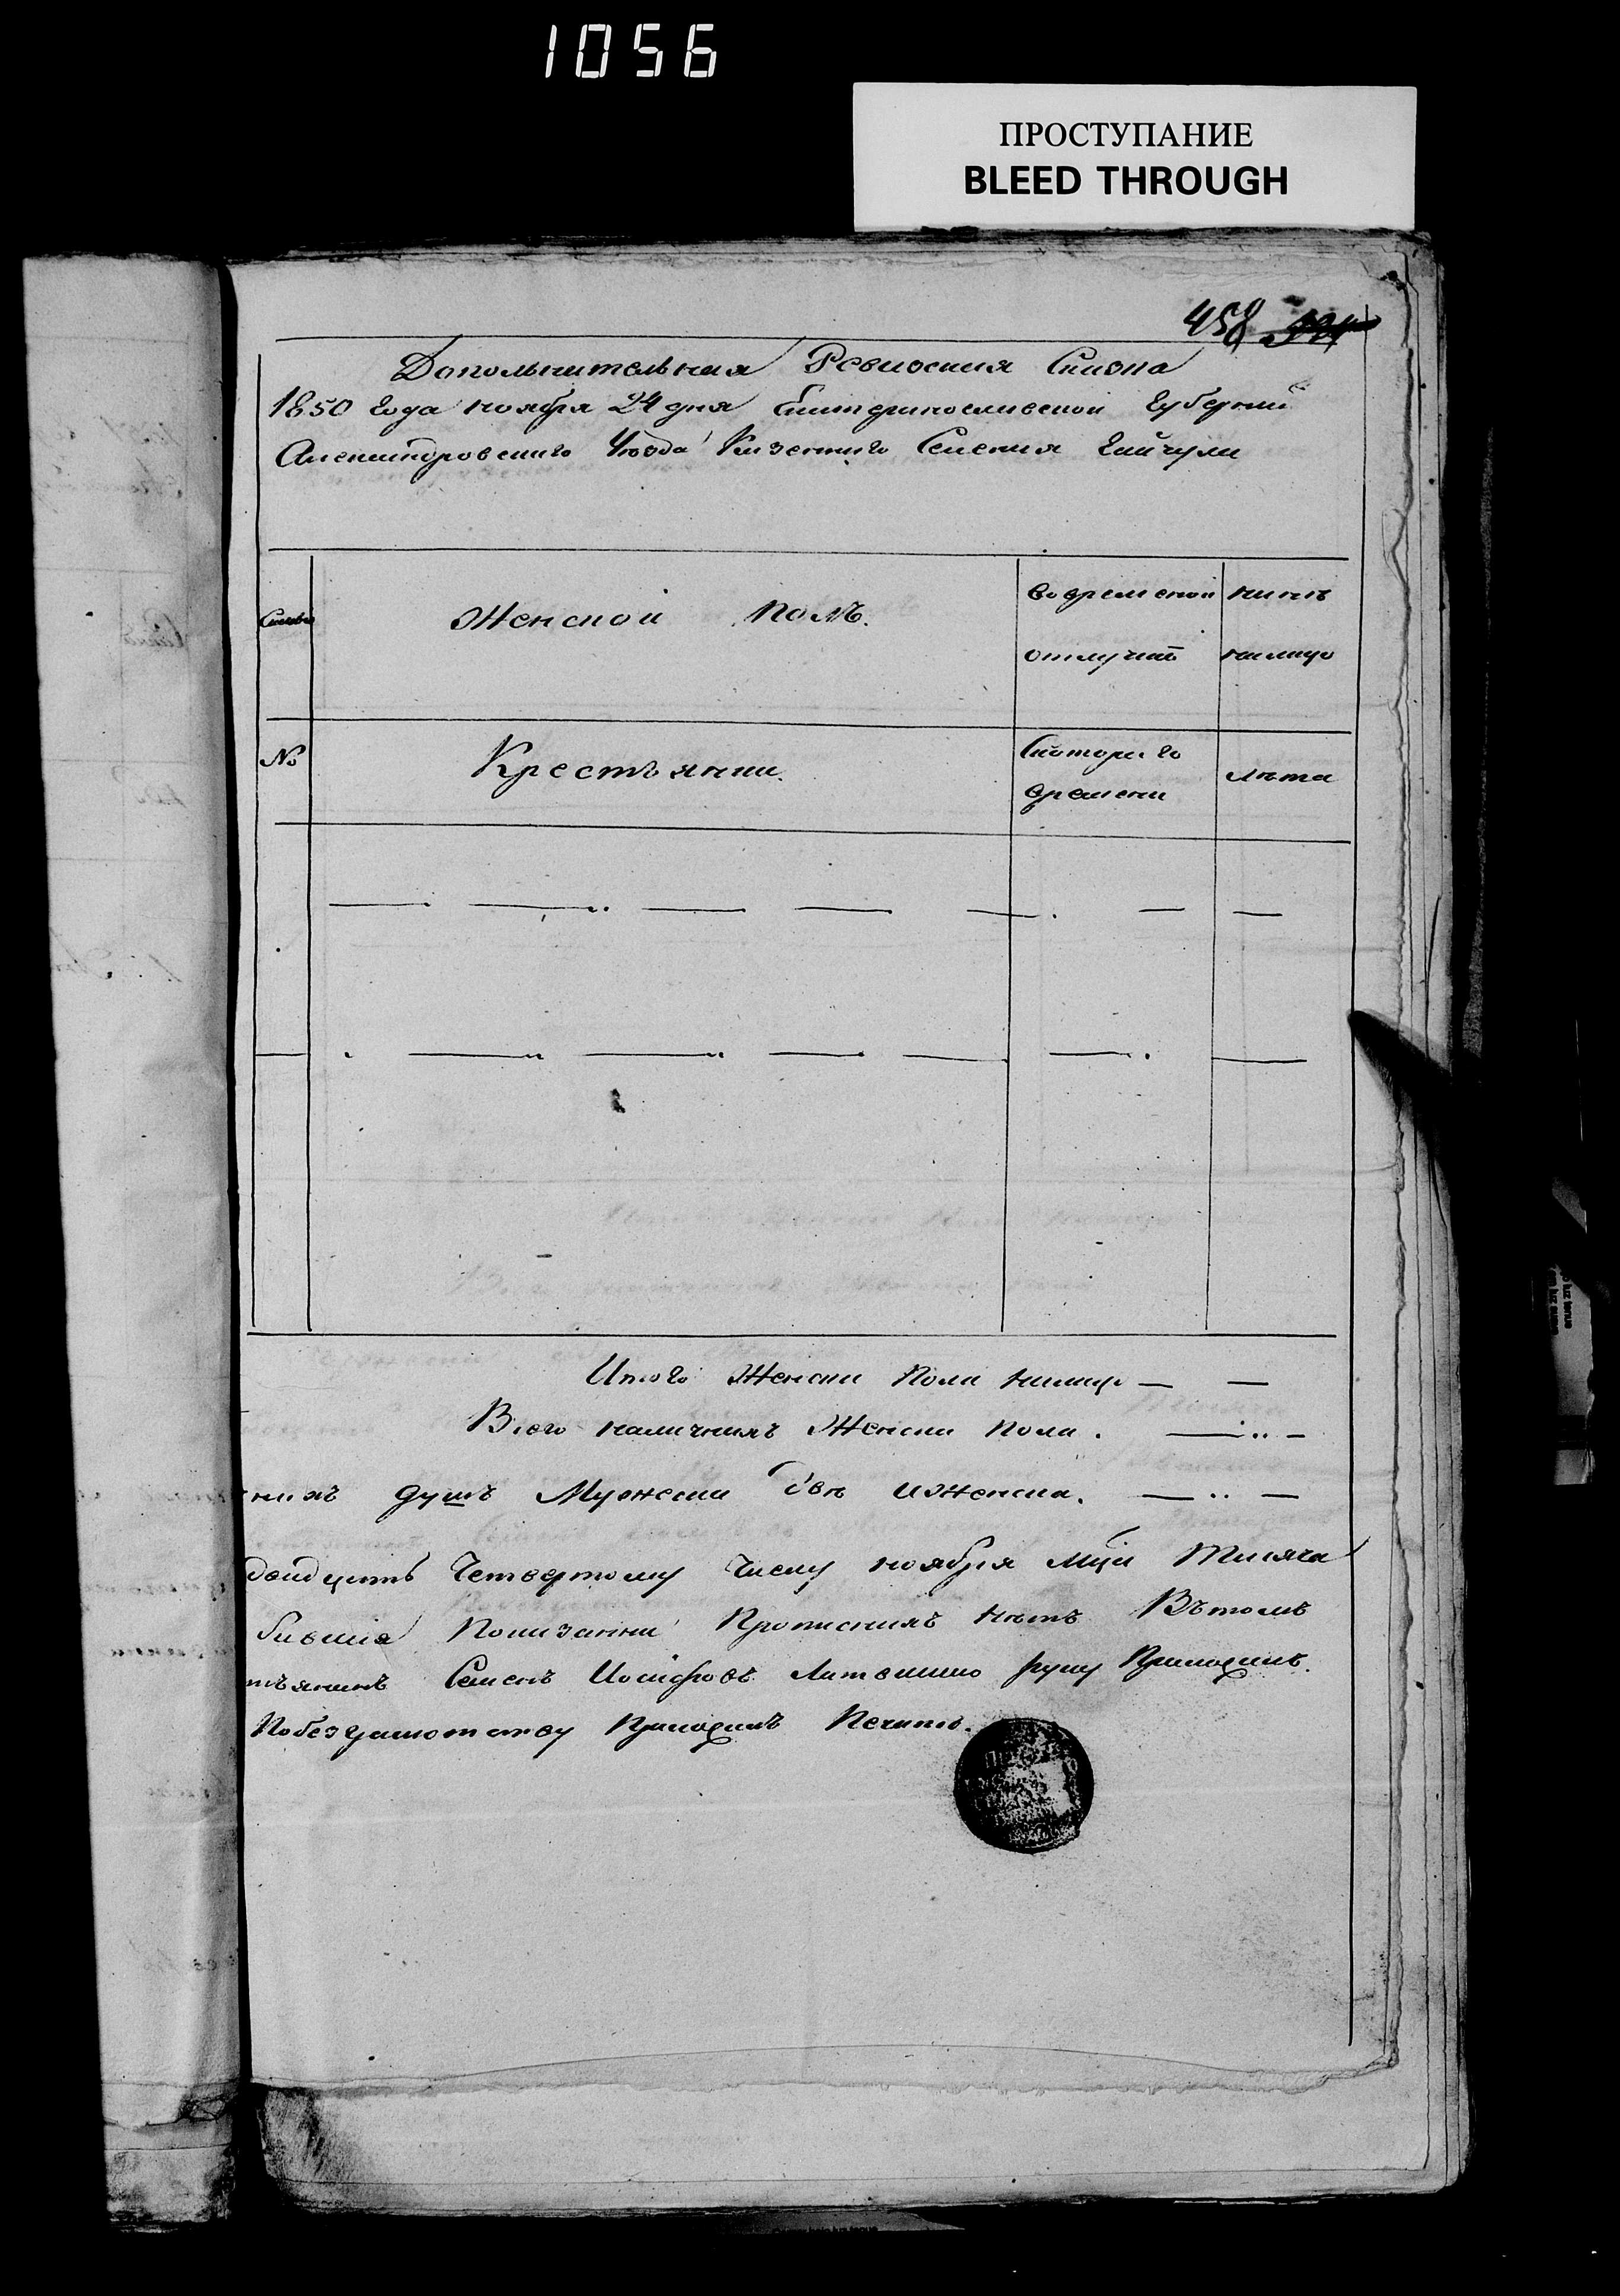 1056
ПРОСТУПАНИЕ
BLEED THROUGH
458
Дополнительная Ревизская Сказка
1850 года ноября 24 дня Екатеринославской Губернии
Александровского Уѣзда Казенного Селения Гайчула
Женской полъ.
Во временной
отлучкѣ
нынѣ
налицо
№
Крестьянки.
Скоторого
времени
лѣта
Итого Женска Пола налицо — —
Всего наличныхъ Женска пола .
душъ Мужеска двѣ иЖенска.
двадцать Четвертому Числу ноября Мца Тысяча
Показанни Прописныхъ нѣтъ Вътомъ
Семенъ Иосифовъ руку Приложилъ.
Побезграмотству Приложилъ Печать.